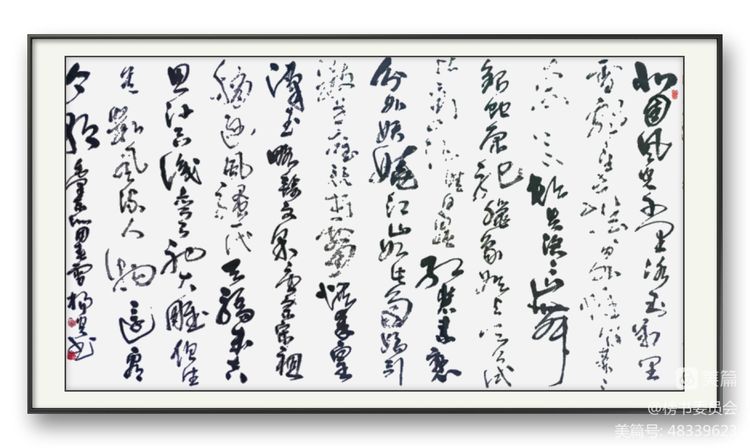 北国风光千里冰封万里
雪飘望长城内外惟余莽莽
大河上下顿失滔滔山舞
银蛇原驰蜡象欲与天公试
比高须晴日看红装素裹
分外妖娆江山如此多娇引
无数英雄竞折腰惜秦皇
汉武略输文采唐宗宋祖
稍逊风骚一代天骄成吉
思汗只识弯弓射大雕俱往
矣数风流人物还看
今朝
美篇
@榜书委员会
美篇号: 48339623